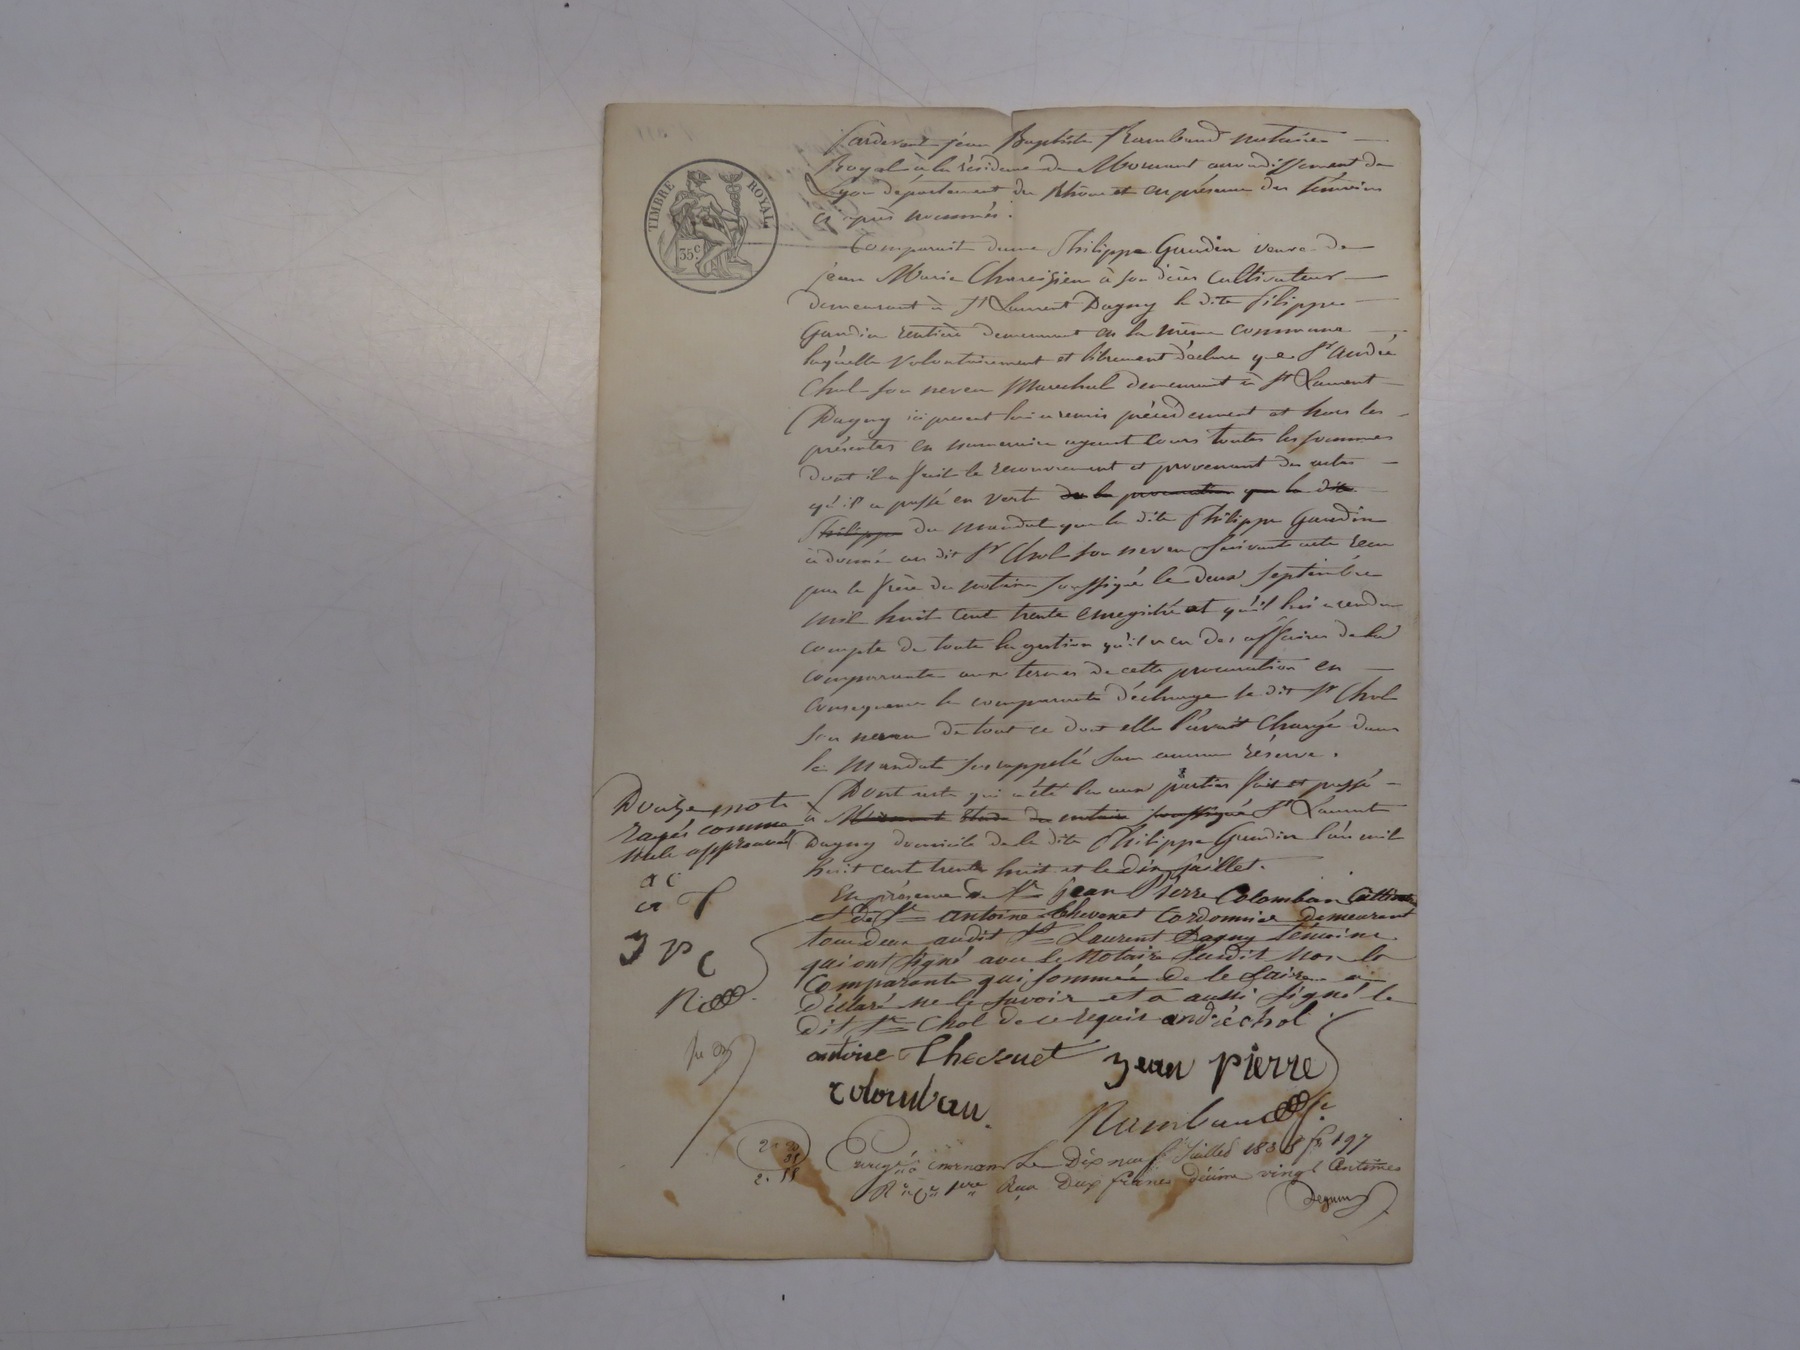 TIMBRE ROYAL
35c
Pardevant jéan Baptiste Rambaud notaire
Royal à la résidence de Mornant arrondissement de
Lyon département du Rhône et en présence des témoins
ci après nommés.
Comparait dame Philippe Gaudin veuve de
jean Marie à son décès cultivateur
demeurant à St Laurent Dagny la dite filippe
Gaudin rentière demeurant en la même commune
laquelle volontairement et librement déclare que Sr André
Chol son neveu Marechal demeurant à St Laurent
Dagny ici present lui a remis précédemment et hors les
présentes en numeraire ayant cours toutes les sommes
dont il a fait le recouvrement et provenant des actes
qu'il a passé en vertu de la procuration que la dite
Philippe du mandat que la dite Philippe Gaudin
a donné au dit Sr Chol son neveu suivant acte recu
par le frère du notaire soussigné le deux septembre
mil huit cent trente enregistré et qu'il lui a rendu
compte de toute la gestion qu'il a eu des affaires de la
comparante aux termes de cette procuration en
consequence la comparante décharge le dit Sr Chol
son neveu de tout ce dont elle l'avait chargé dans
le mandat susrappelé sans aucune réserve.
Dont acte qui a été lu aux parties fait et passé
à Mornant étude du notaire soussigné St Laurent
Dagny domicile de la dite Philippe Gaudin l'an mil
huit cent trente huit et le dix juillet.
En présence de Sr jean Pierre Colomban
et de Sr antoine thevenet Cordonnier demeurant
tous deux audit St Laurent Dagny témoins
qui ont signé avec le notaire susdit non la
Comparante qui sommée de le faire a
déclaré ne le savoir et a aussi signé le
dit Sr Chol de ce requis andré chol
antoine Thevenet jean pierre
colomban
Rambaud
Douze mots
rayés comme
nuls approuvés
a c
a T
J p c
R
2. 20
2.
Enregé à mornant Le Dix neuf Juillet 1838 fo 197
Ro Ce 1ere Reçu Deux francs décime vingt Centimes